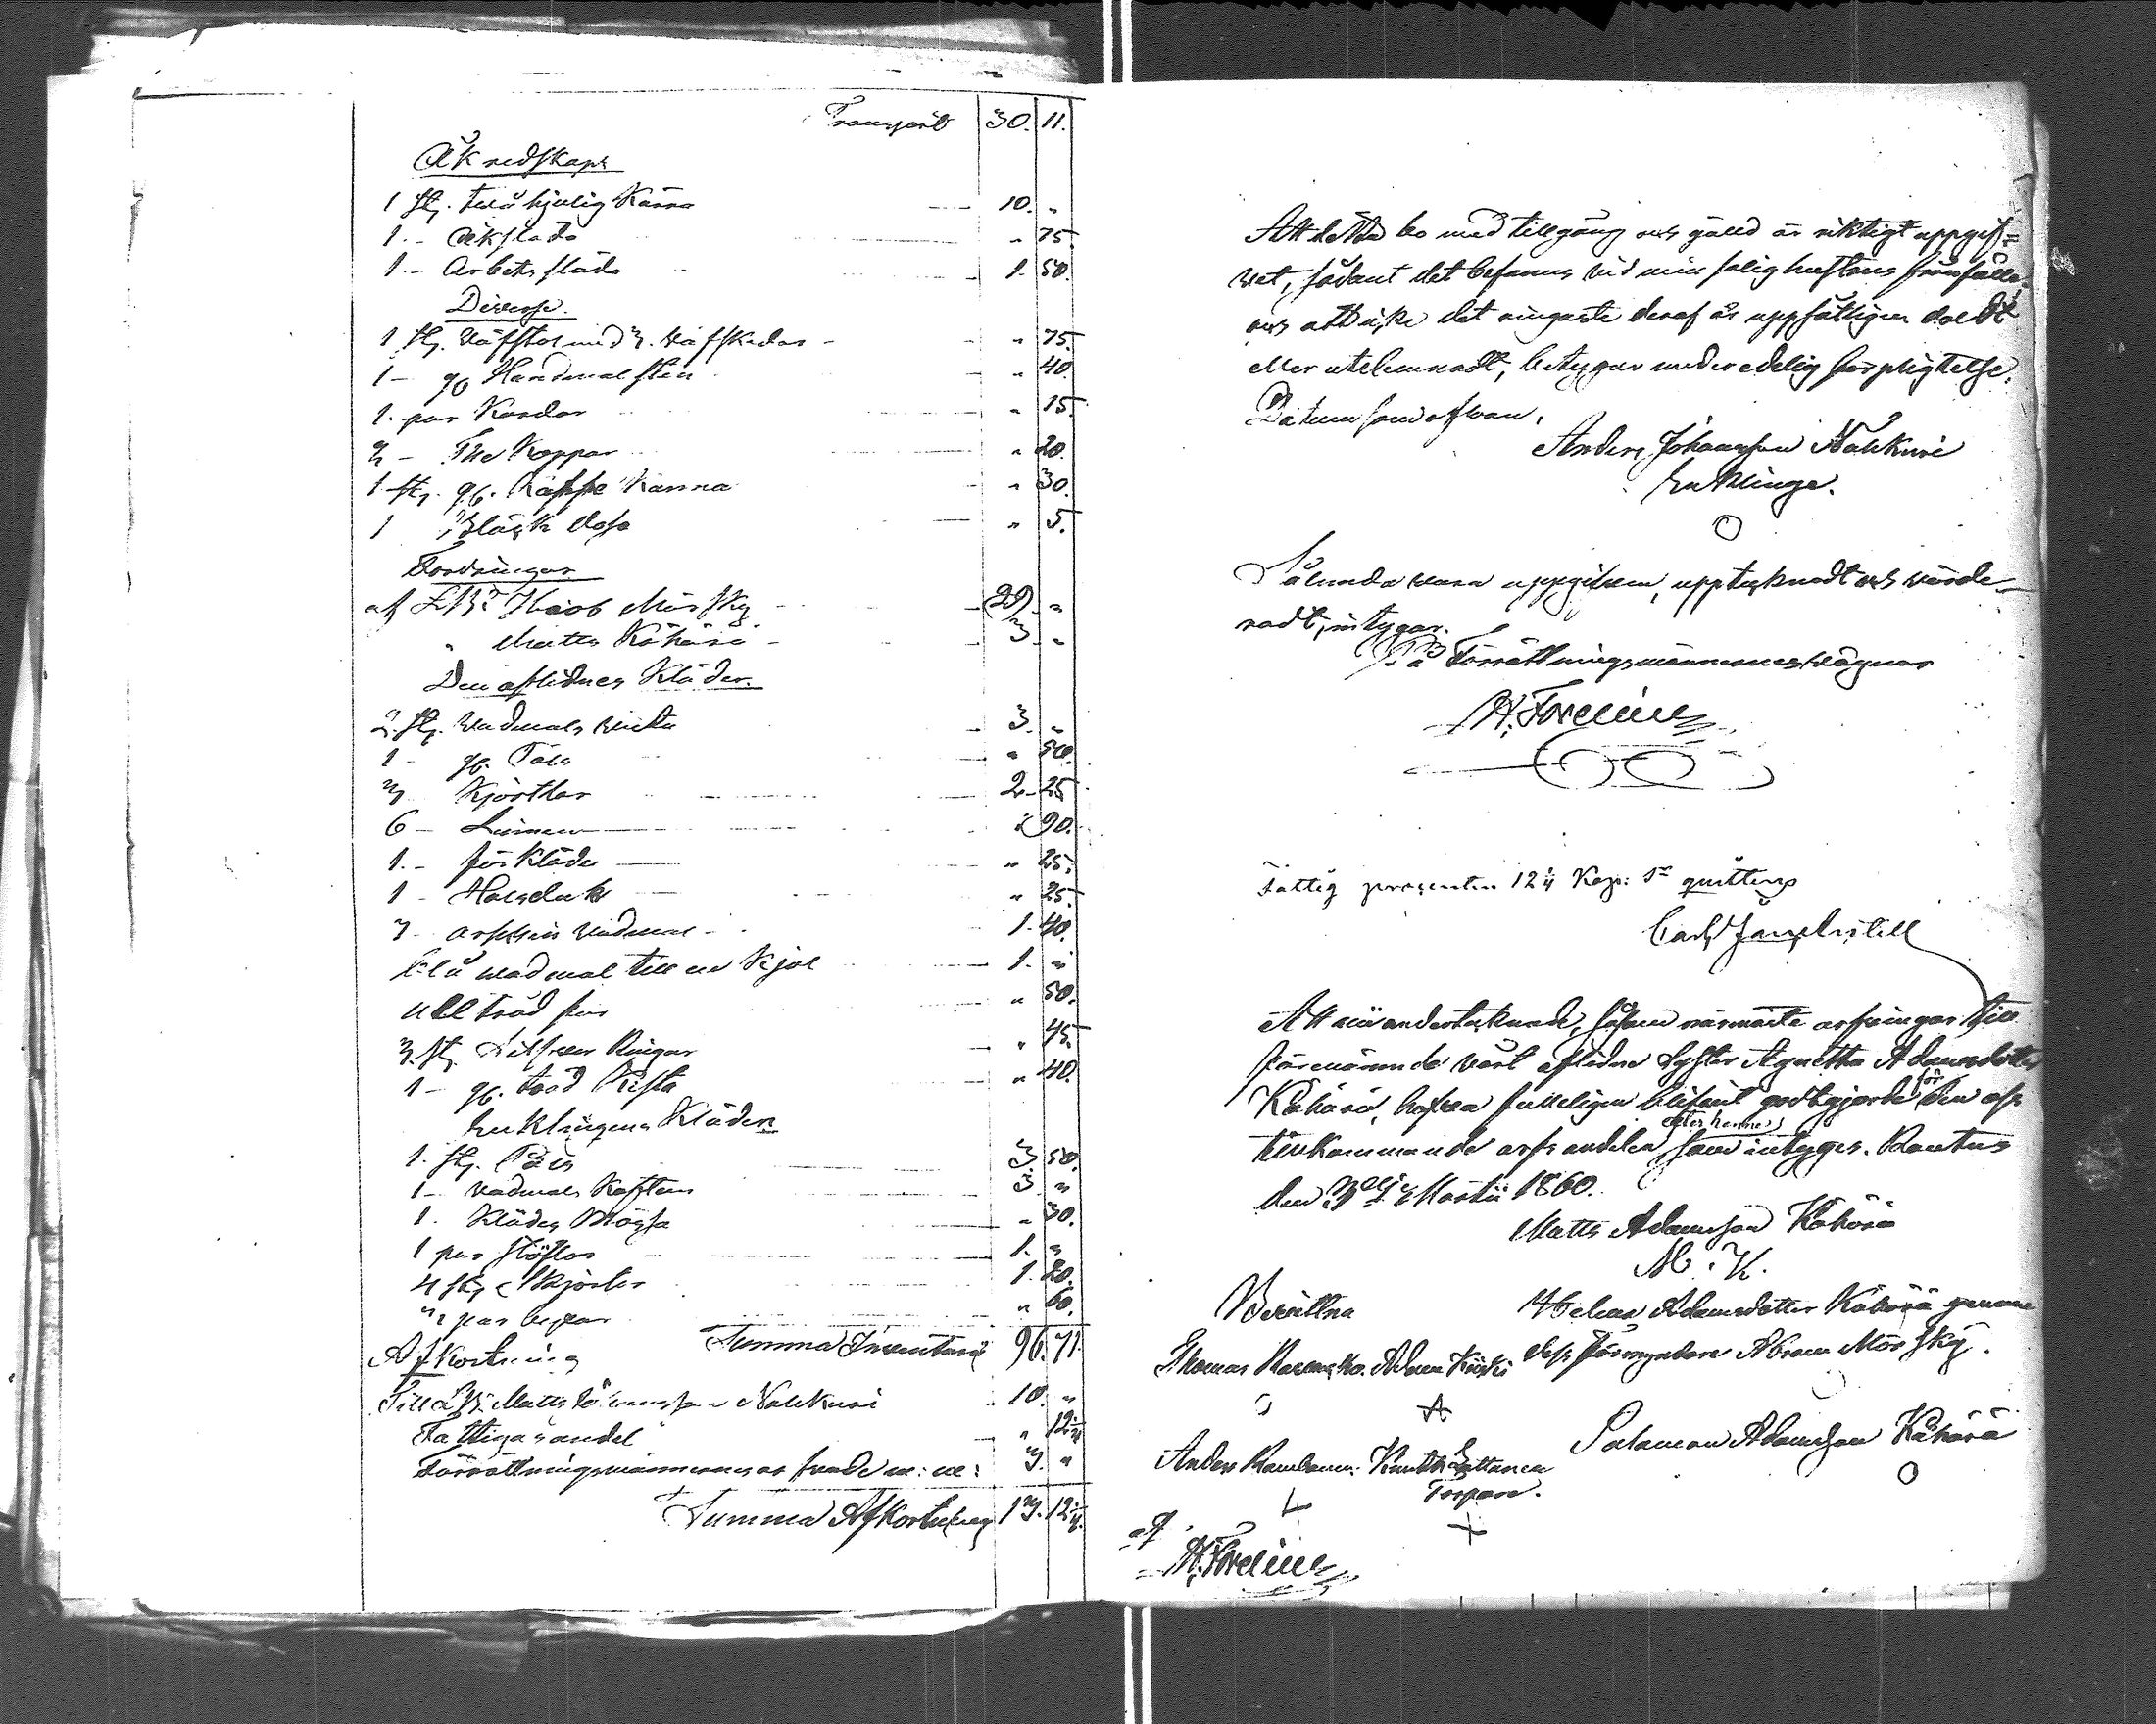 Transport 30. 11.
Åkredskap
1 st. två hjulig Kärra 10. "
1. - Åkslade " 75.
1. - Arbets släde 1. 50.
Diverse.
1 st. Väfstol med 3. väfskedar - " 75.
1 - gl Handmalsten " 40.
1. par Kardor " 15.
3 - The Koppar " 20.
1 st. gl. Kaffe Kanna " 30.
1 Bläck dosa " 5.
Fordringar
af Jacob Mörsky 29. "
" Matts Kähärä - 3. "
Den aflidnes Kläder.
2. st. Vadmals 3. "
1 - gl. Päls " 50.
3 Kjortlar 2. 25
6 - Linnen " 90.
1. - förkläde " 25.
1 - Halsduk " 25.
7 - arschin Vadmal - 1. 40.
blå vadmal till en Kjol 1. "
ull tråd för " 50.
3. st. Silfver Ringar " 45.
1 - gl. Kista " 40.
Enklingens Kläder
1. st. Päls 3. 50.
1 - vadmals Kaftan 3. "
1. Klädes Mössa " 30.
1 par stöflar 1. "
4 st. Skjortor 1. 20.
3 par byxor " 60.
Summa Inventarii 96. 71.
Afkortning
Till Matts Johansson Nahkuri 10. "
Fattigas andel " 12 1/4
Förrättningsmännernas arfvode m: m: 3. "
Summa Afkortning 13. 12 1/4.
Att detta bo med tillgång och gäld är riktigt uppgif=
vet, sådant det befanns vid min salig hustrus frånfälle,
och att icke det ringaste deraf är uppsåtligen doldt
eller utelemnadt, betygar under edelig förpligtelse.
Datum som ofvan.
Anders Johansson Nahkuri
Enklinge.
Sålunda vara uppgifven, upptecknadt och värde-
radt, intygar.
På Förrättningsmännernes vägnar
A. Forelius
Fattig procenten 12 1/4 Kop: Sr quitteras
Carl
Att vi undertecknade, såsom närmaste arfvingar till
förenämnde vårt aflidne Syster Agnetha Adamsdotter
Kähärä, hafva fulleligen blifvit godtgjorde för den oss
tillkommande arfs andelen efter henne, som intyges. Rautus
den 3 Martii 1860.
Matts Adamsson Kähärä
M. K.
Bevittna Helena Adamsdotter Kähärä genom
Thomas Adam Kiiski dess förmyndare Abram Mörsky.
Salomon Adamsson Kähärä
Anders Knuth Lattanen
Torpare.
af
A. Forelius